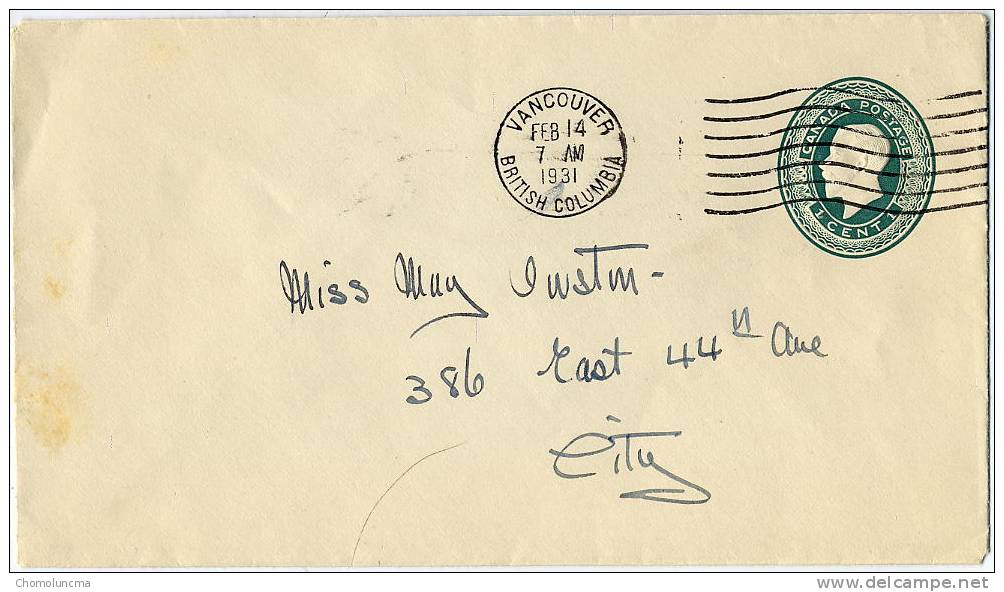 VANCOUVER
FEB 14
7 AM
1931
BRITISH COLUMBIA
CANADA POSTAGE
1 CENT 1
Miss May
386 East 44th Ave
City
Chomoluncma
delcampe.net